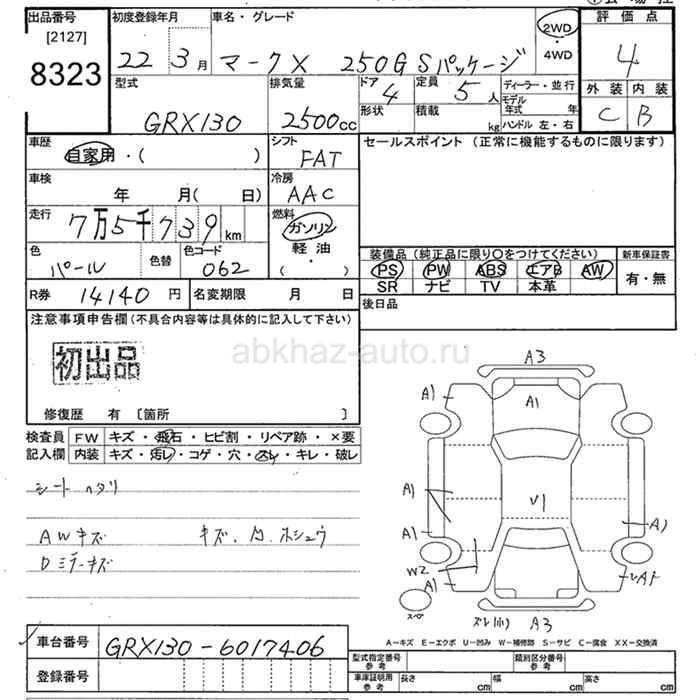 出品番号 初度登録年月 車名・グレード 評価点
[2127] 22年 3月 マークX 250G Sパッケージ 2WD ・ 4WD 4
8323
型式 排気量 ドア 定員 ディーラー・並行 外装 内装
GRX130 2500cc 4 5人 モデル年式 年 C B
形状 積載 kg ハンドル 左・右
車歴 シフト セールスポイント (正常に機能するものに限ります)
自家用・( ) FAT
車検 冷房
年 月( 日) AAC
走行 燃料
7万5千739km ガソリン・軽油・( )
色 色替 色コード 装備品(純正品に限り○をつけてください) 新車保証書
パール 062 PS PW ABS エアB AW 有・無
SR ナビ TV 本革
R券 14140円 名変期限 月 日 後日品
注意事項申告欄(不具合内容等は具体的に記入して下さい)
初出品
abkhaz-auto.ru
修復歴 有 [箇所 ]
検査員 FW キズ・飛石・ヒビ割・リペア跡・×要
記入欄 内装 キズ・汚レ・コゲ・穴・スレ・キレ・破レ
シートヘタリ
AWキズ キズ、凹、ホシュウ
Dミラーキズ
A3
A1 A1
A1 V1
A1 A1
W2
A1
スペ A3
A-キズ E-エクボ U-凹み W-補修跡 S-サビ C-腐食 XX-交換済
車台番号 GRX130-6017406
登録番号
型式指定番号 参考 類別区分番号 参考
車庫証明用 参考 長さ cm 幅 cm 高さ cm